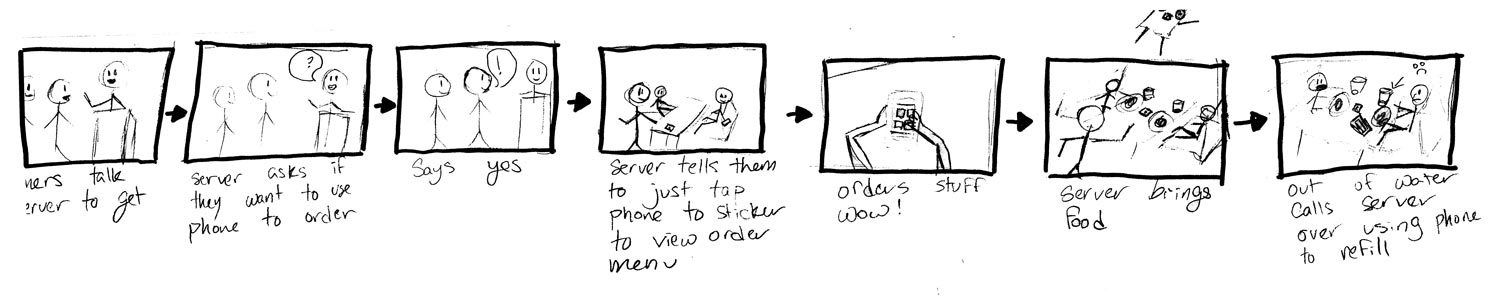 ners talk
erver to get
?
server asks if
they want to use
phone to order
!
Says yes
Server tells them
to just tap
phone to sticker
to view order
menu
orders stuff
wow!
Server brings
food
out of water
calls server
over using phone
to refill